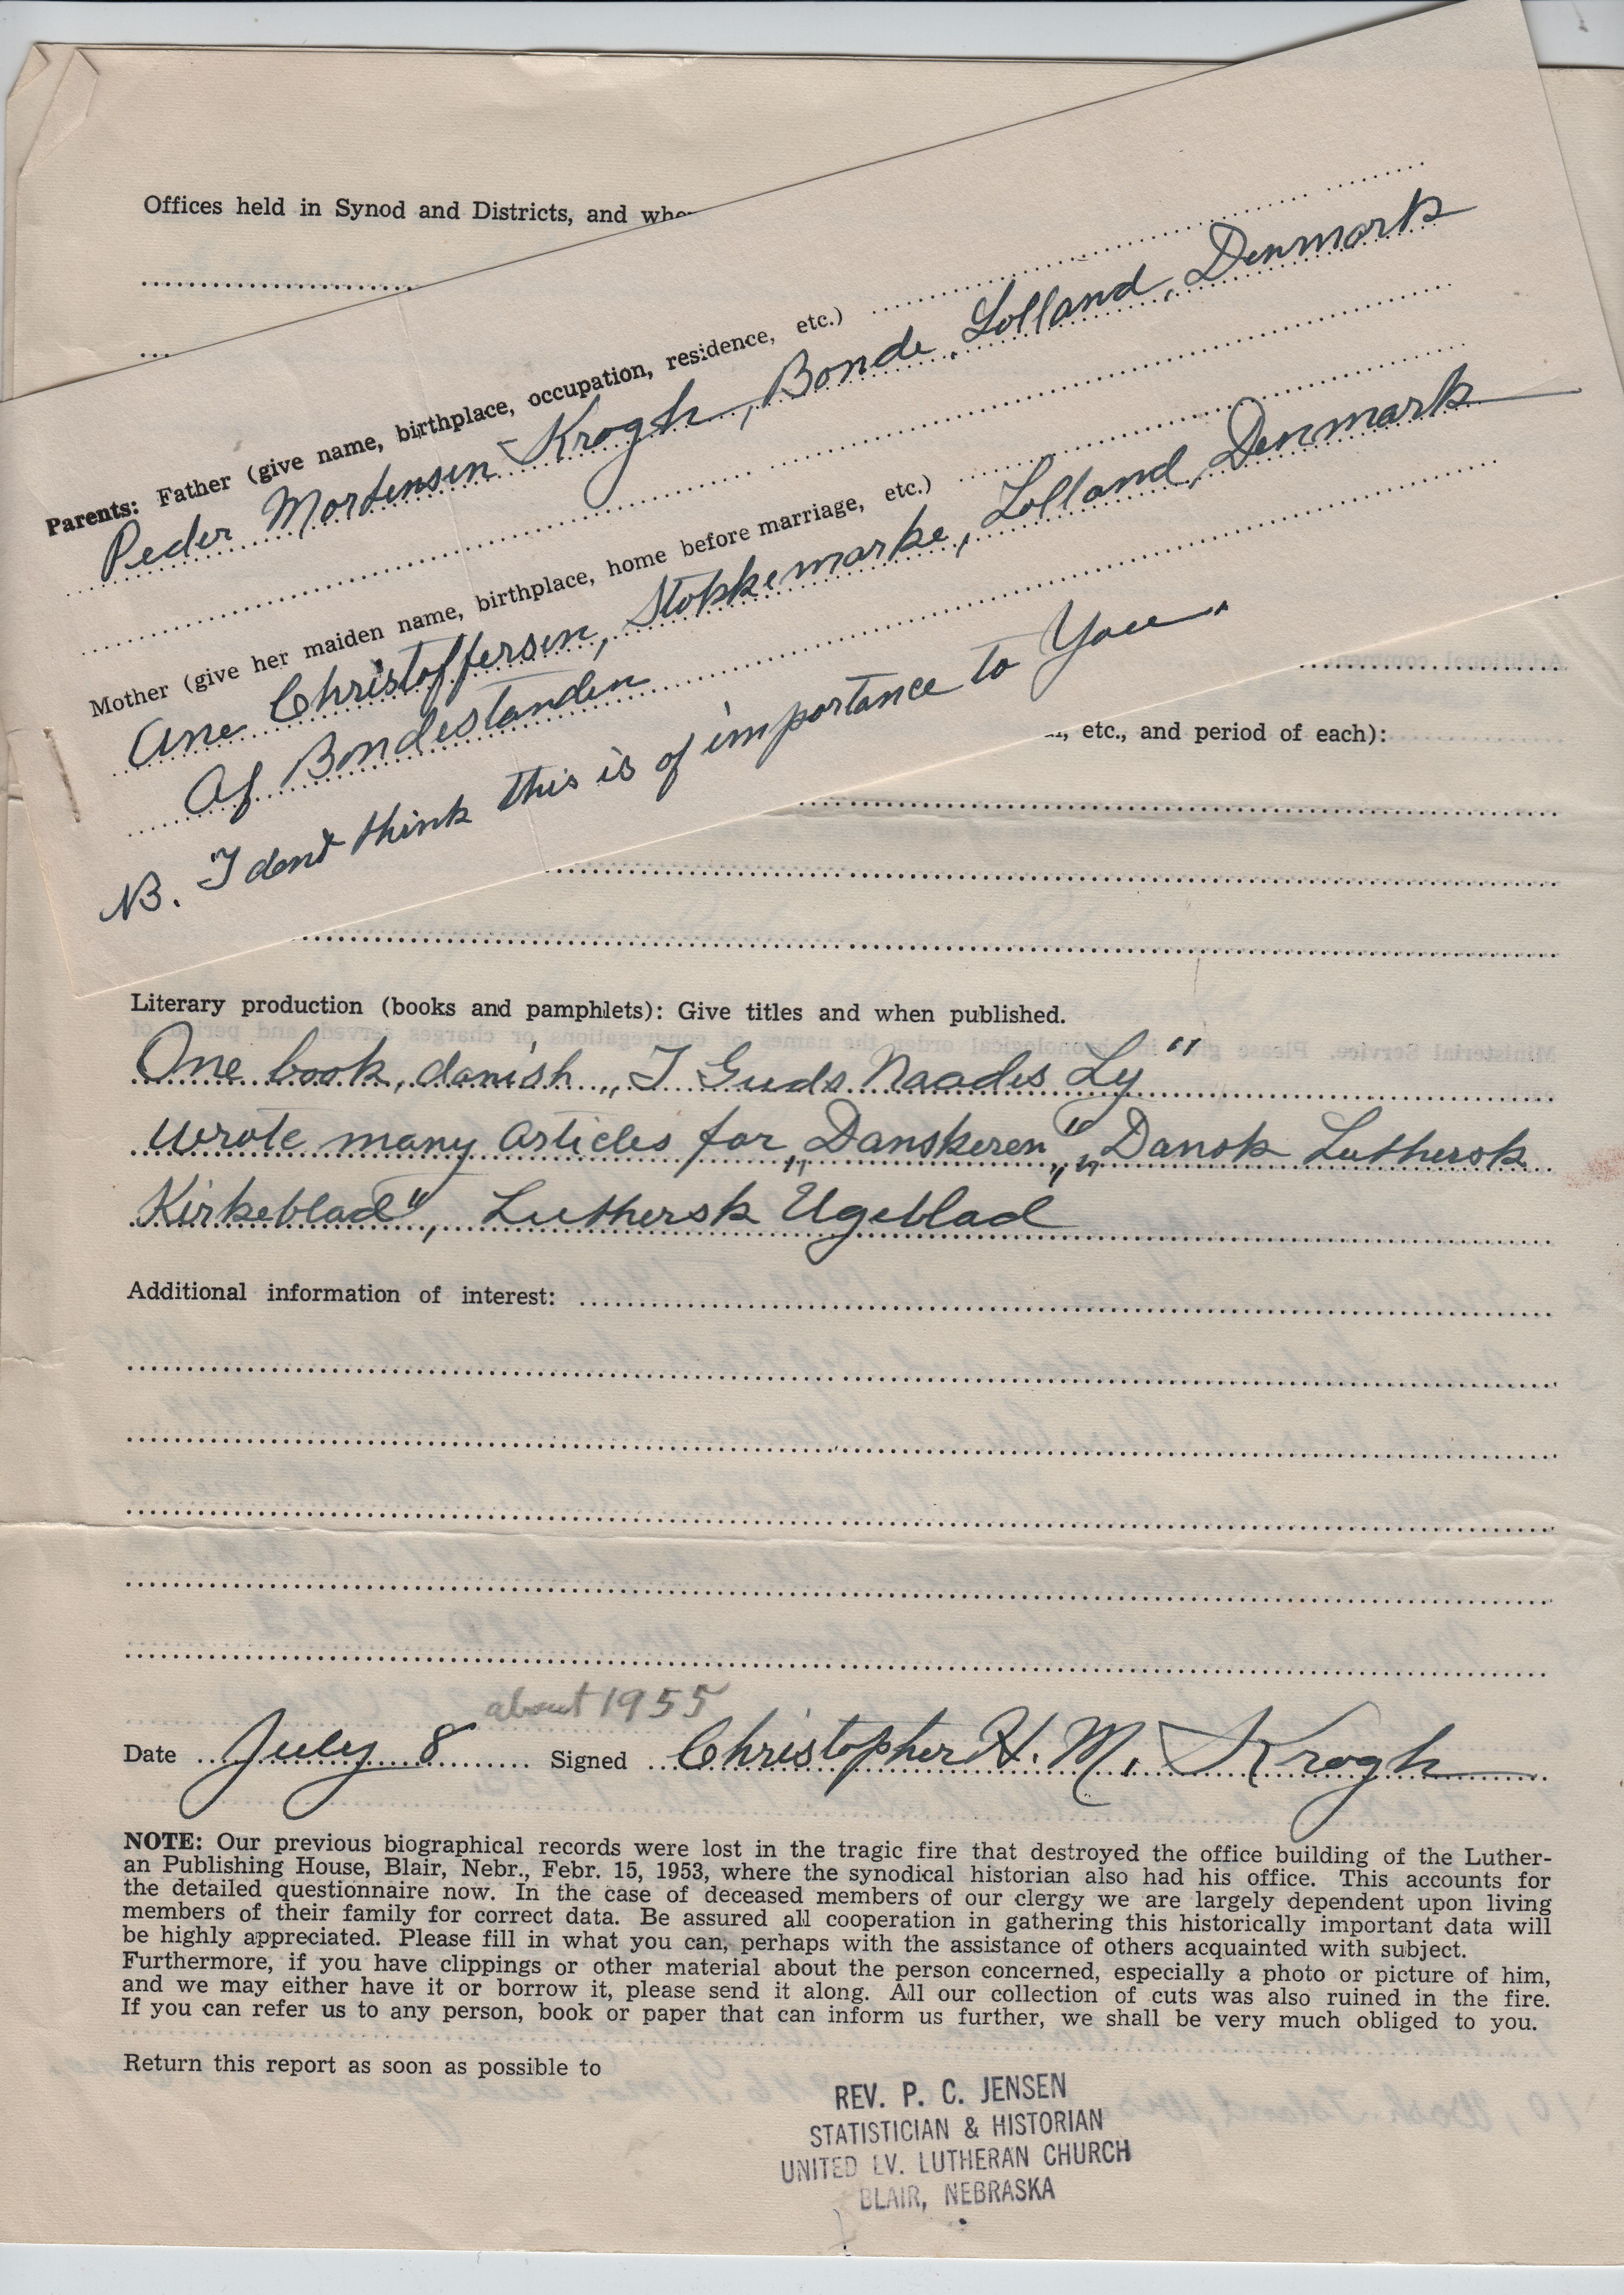 Offices held in Synod and Districts, and
Parents: Father (give name, birthplace, occupation, residence, etc.)
Peder Mortensen Krogh, Bonde, Lolland, Denmark
Mother (give her maiden name, birthplace, home before marriage, etc.)
Ane Christoffersen, Stokkemarke, Lolland, Denmark
Af Bondestanden
NB. I dont think this is of importance to You.
etc., and period of each):
Literary production (books and pamphlets): Give titles and when published.
One book, danish „I Guds Naades Ly"
wrote many articles for „Danskeren", „Dansk Luthersk
Kirkeblad", Luthersk Ugeblad
Additional information of interest:
about 1955
Date July 8 Signed Christopher H. M. Krogh
NOTE: Our previous biographical records were lost in the tragic fire that destroyed the office building of the Luther-
an Publishing House, Blair, Nebr., Febr. 15, 1953, where the synodical historian also had his office. This accounts for
the detailed questionnaire now. In the case of deceased members of our clergy we are largely dependent upon living
members of their family for correct data. Be assured all cooperation in gathering this historically important data will
be highly appreciated. Please fill in what you can, perhaps with the assistance of others acquainted with subject.
Furthermore, if you have clippings or other material about the person concerned, especially a photo or picture of him,
and we may either have it or borrow it, please send it along. All our collection of cuts was also ruined in the fire.
If you can refer us to any person, book or paper that can inform us further, we shall be very much obliged to you.
Return this report as soon as possible to
REV. P. C. JENSEN
STATISTICIAN & HISTORIAN
UNITED EV. LUTHERAN CHURCH
BLAIR, NEBRASKA